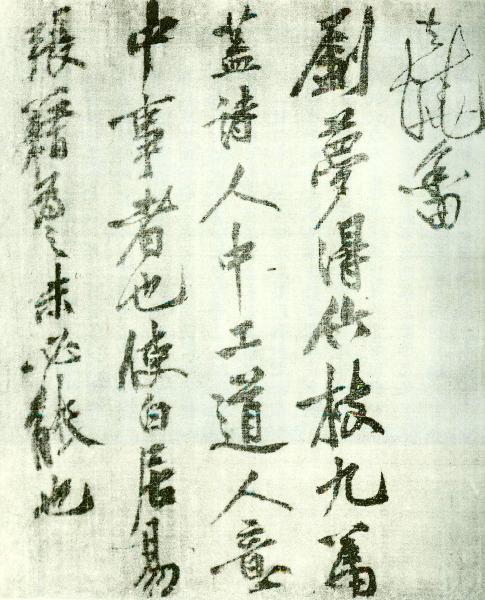 燒畬
劉夢得竹枝九篇
蓋詩人中工道人意
中事者也使白居易
張籍為之未必能也